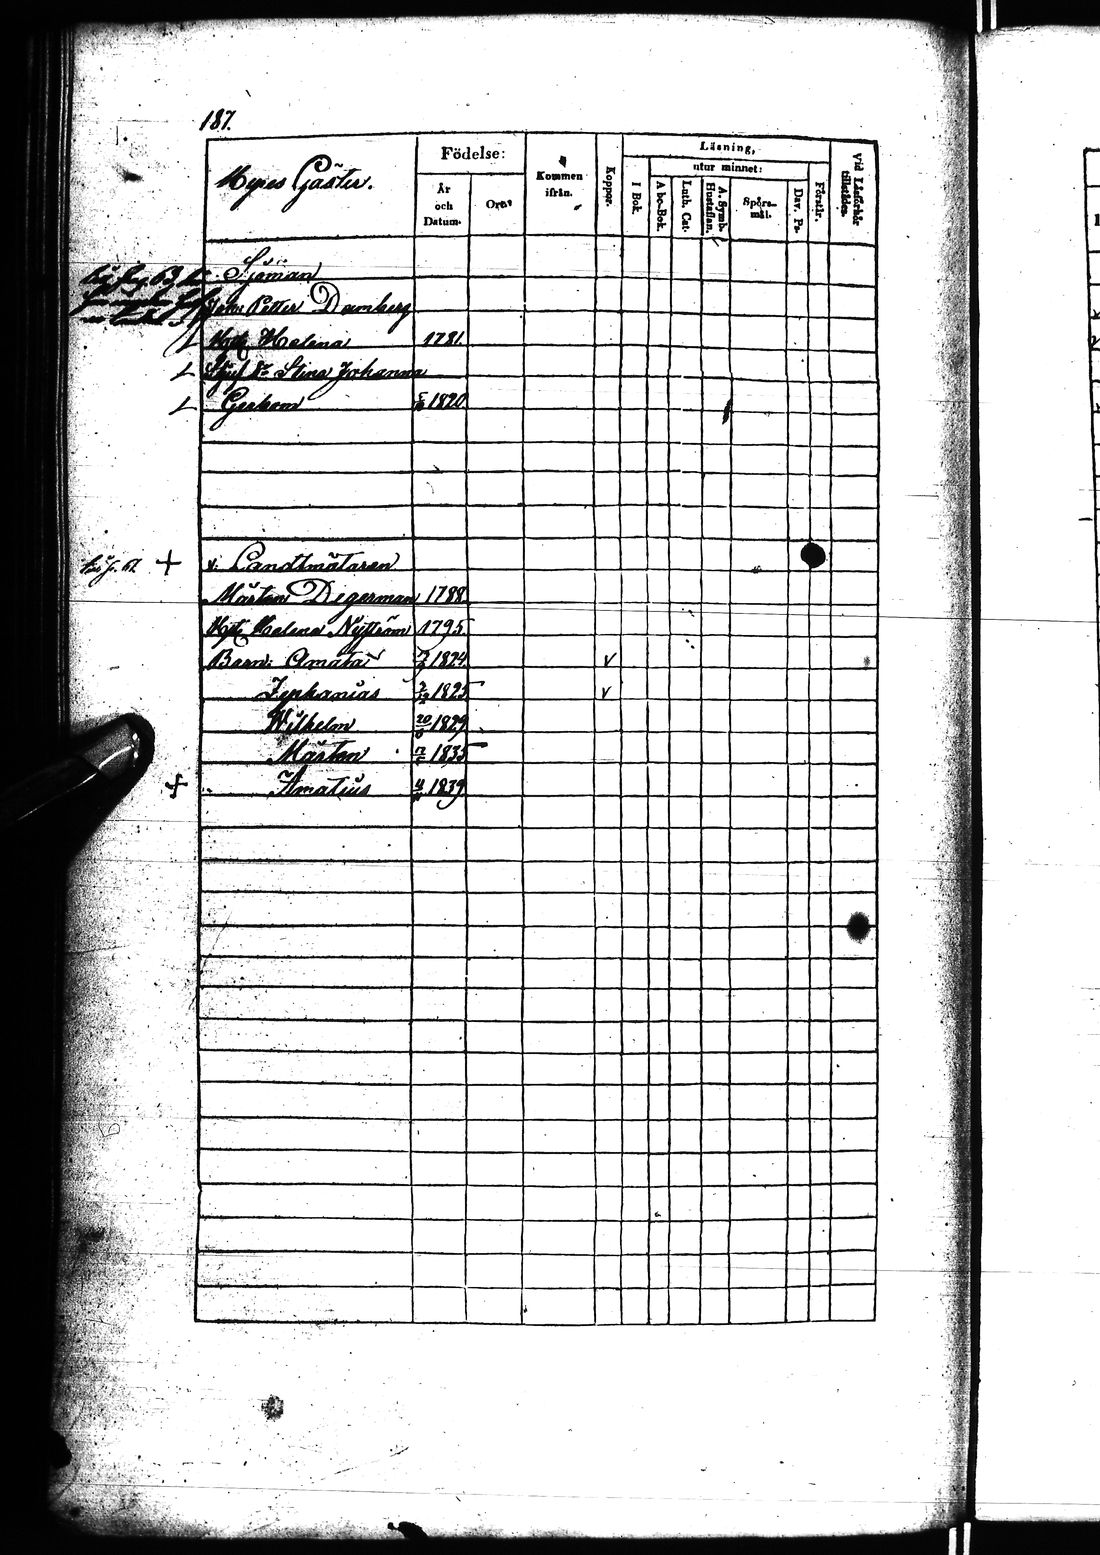 187.
Gäster.
Födelse:
År
och
Datum.
Ort.
Kommen
ifrån.
Koppor.
Läsning,
utur minnet:
I Bok.
Abc-Bok.
Luth. Cat.
A. Symb.
Hustaflan.
Spörs-
mål.
Dav. Ps.
Förstår.
Vid Läsförhör
tillstädes.
Sjöman
Petter Damberg
Hust Helena 1781.
Styf Dr Stina Johanna
Gerkom 1820
v. Landtmätaren
Mårten Digerman 1788
Hust Helena Nyström 1795
Barn: Amata 1824 v
Zephanias 1825 v
Wilhelm 20 1829
Mårten 1835
Amatius 1839